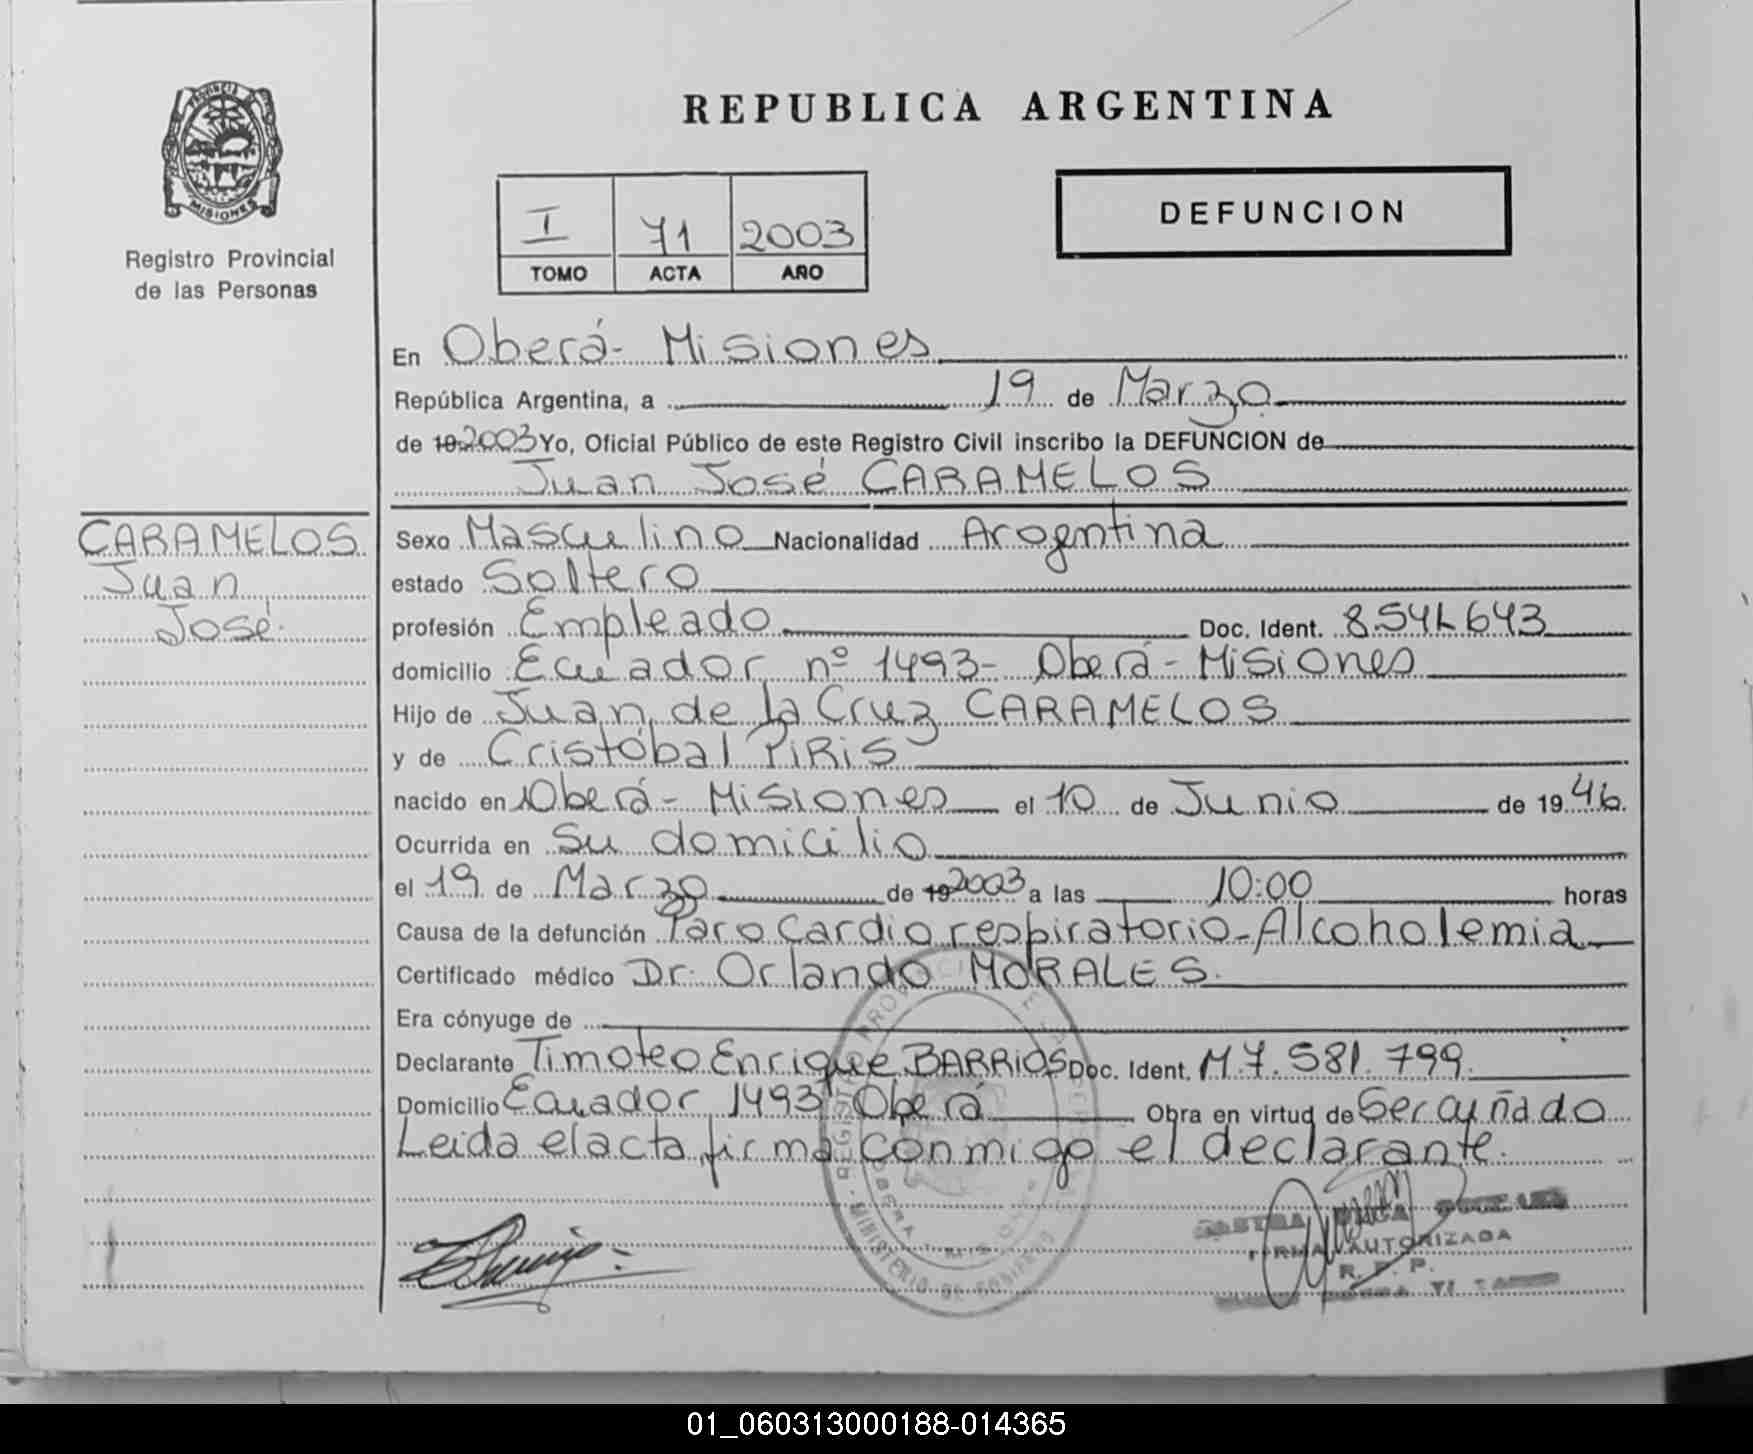 PROVINCIA DE
MISIONES
Registro Provincial
de las Personas
REPUBLICA ARGENTINA
I 71 2003
TOMO ACTA AÑO
DEFUNCION
En Oberá- Misiones
República Argentina, a 19 de Marzo
de 19 2003 Yo, Oficial Público de este Registro Civil inscribo la DEFUNCION de
Juan José CARAMELOS
CARAMELOS
Juan
José.
Sexo Masculino Nacionalidad Argentina
estado Soltero
profesión Empleado Doc. Ident.
domicilio Ecuador nº 1493- Oberá- Misiones
Hijo de Juan de la Cruz CARAMELOS
y de Cristóbal PIRIS
nacido en Oberá- Misiones el 10 de Junio de 1946.
Ocurrida en Su domicilio
el 19 de Marzo de 19 2003 a las 10:00 horas
Causa de la defunción Paro Cardio respiratorio- Alcoholemia
Certificado médico Dr. Orlando MORALES.
Era cónyuge de
Declarante Timoteo Enrique BARRIOS Doc. Ident. M 7.581.799.
Domicilio Ecuador 1493 Oberá Obra en virtud de
Leida el acta, firma conmigo el declarante.
FIRMA AUTORIZADA
R. P. P.
MINISTERIO DE GOBIERNO
01_060313000188-014365